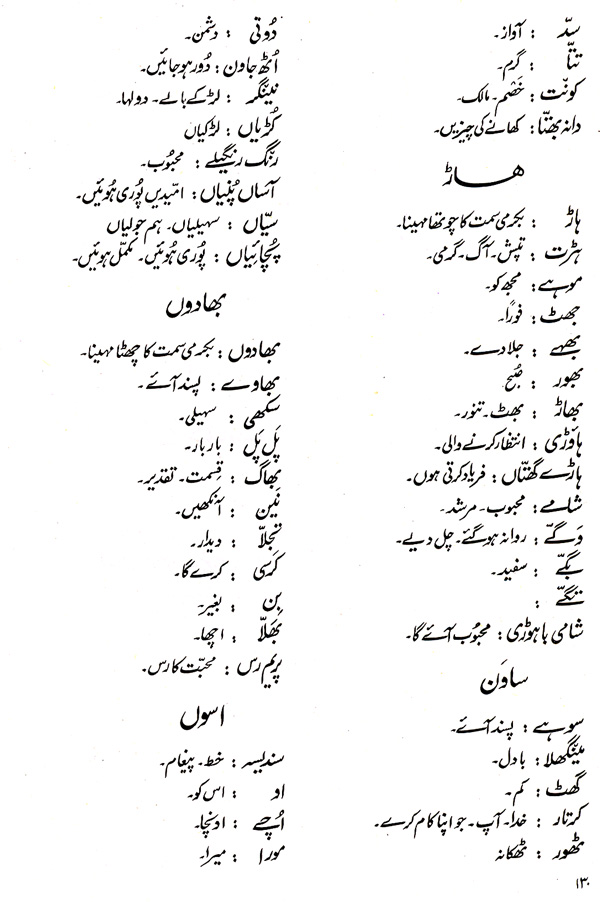 سدّ : آواز۔
تتّا : گرم۔
کونت : خَصَم۔ مالک۔
دانہ بھتّا : کھانے کی چیزیں۔
ھاڑ
ہاڑ : بکرمی سمت کا چوتھا مہینا۔
ہڑت : تپش۔ آگ۔ گرمی۔
موہے : مجھ کو۔
جھٹ : فوراً۔
بھہے : جلا دے۔
بھور : صُبح
بھاڑ : بھٹ۔ تنور۔
ہاوَڑی : انتظار کرنے والی۔
ہاڑے گھتّاں : فریاد کرتی ہوں۔
شامے : محبوب۔ مرشد۔
وَگّے : روانہ ہو گئے۔ چل دیے۔
بگّے : سفید۔
تگّے :
شامی باہوڑی : محبُوب آئے گا۔
ساوَن
سوہے : پسند آئے۔
مینگھلا : بادل۔
گھٹ : کم۔
کرتار : خدا۔ آپ۔ جو اپنا کام کرے۔
ٹھور : ٹھکانہ
دُوتی : دشمن۔
اُٹھ جاون : دُور ہو جائیں۔
نینگر : لڑکے بالے۔ دولہا۔
کُڑیاں : لڑکیاں
رنگ رنگیلے : محبُوب۔
آساں پُنیاں : امّیدیں پُوری ہُوئیں۔
سیّاں : سہیلیاں۔ ہم جولیاں
پُچائیاں : پُوری ہُوئیں۔ مکمّل ہوئیں۔
بھادوں
بھادوں : بکرمی سمت کا چھٹا مہینا۔
بھاوے : پسند آئے۔
سکھی : سہیلی۔
پَل پَل : بار بار۔
بھاگ : قِسمت۔ تقدیر۔
نَین : آنکھیں۔
تجلاّ : دیدار۔
کَرسی : کرے گا۔
بِن : بغیر۔
بھَلاّ : اچھا۔
پریم رس : محبّت کا رس۔
اسوں
سندیسہ : خط۔ پیغام۔
او : اس کو۔
اُچے : اونچا۔
مورا : میرا۔
۱۳۰